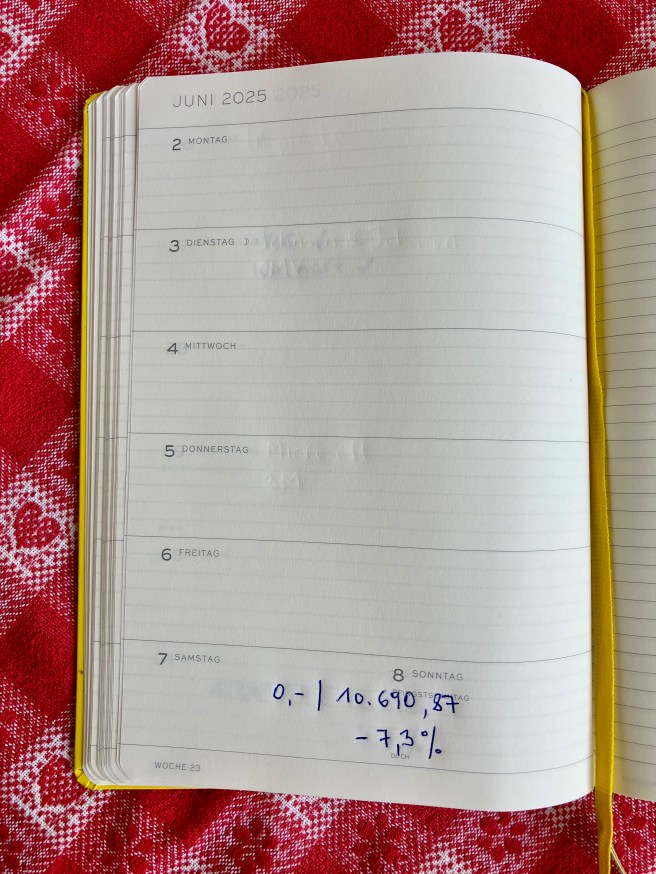 JUNI 2025
2 MONTAG
3 DIENSTAG
4 MITTWOCH
5 DONNERSTAG
6 FREITAG
7 SAMSTAG
8 SONNTAG
PFINGSTSONNTAG
0,- | 10.690,87
-7,3%
WOCHE 23